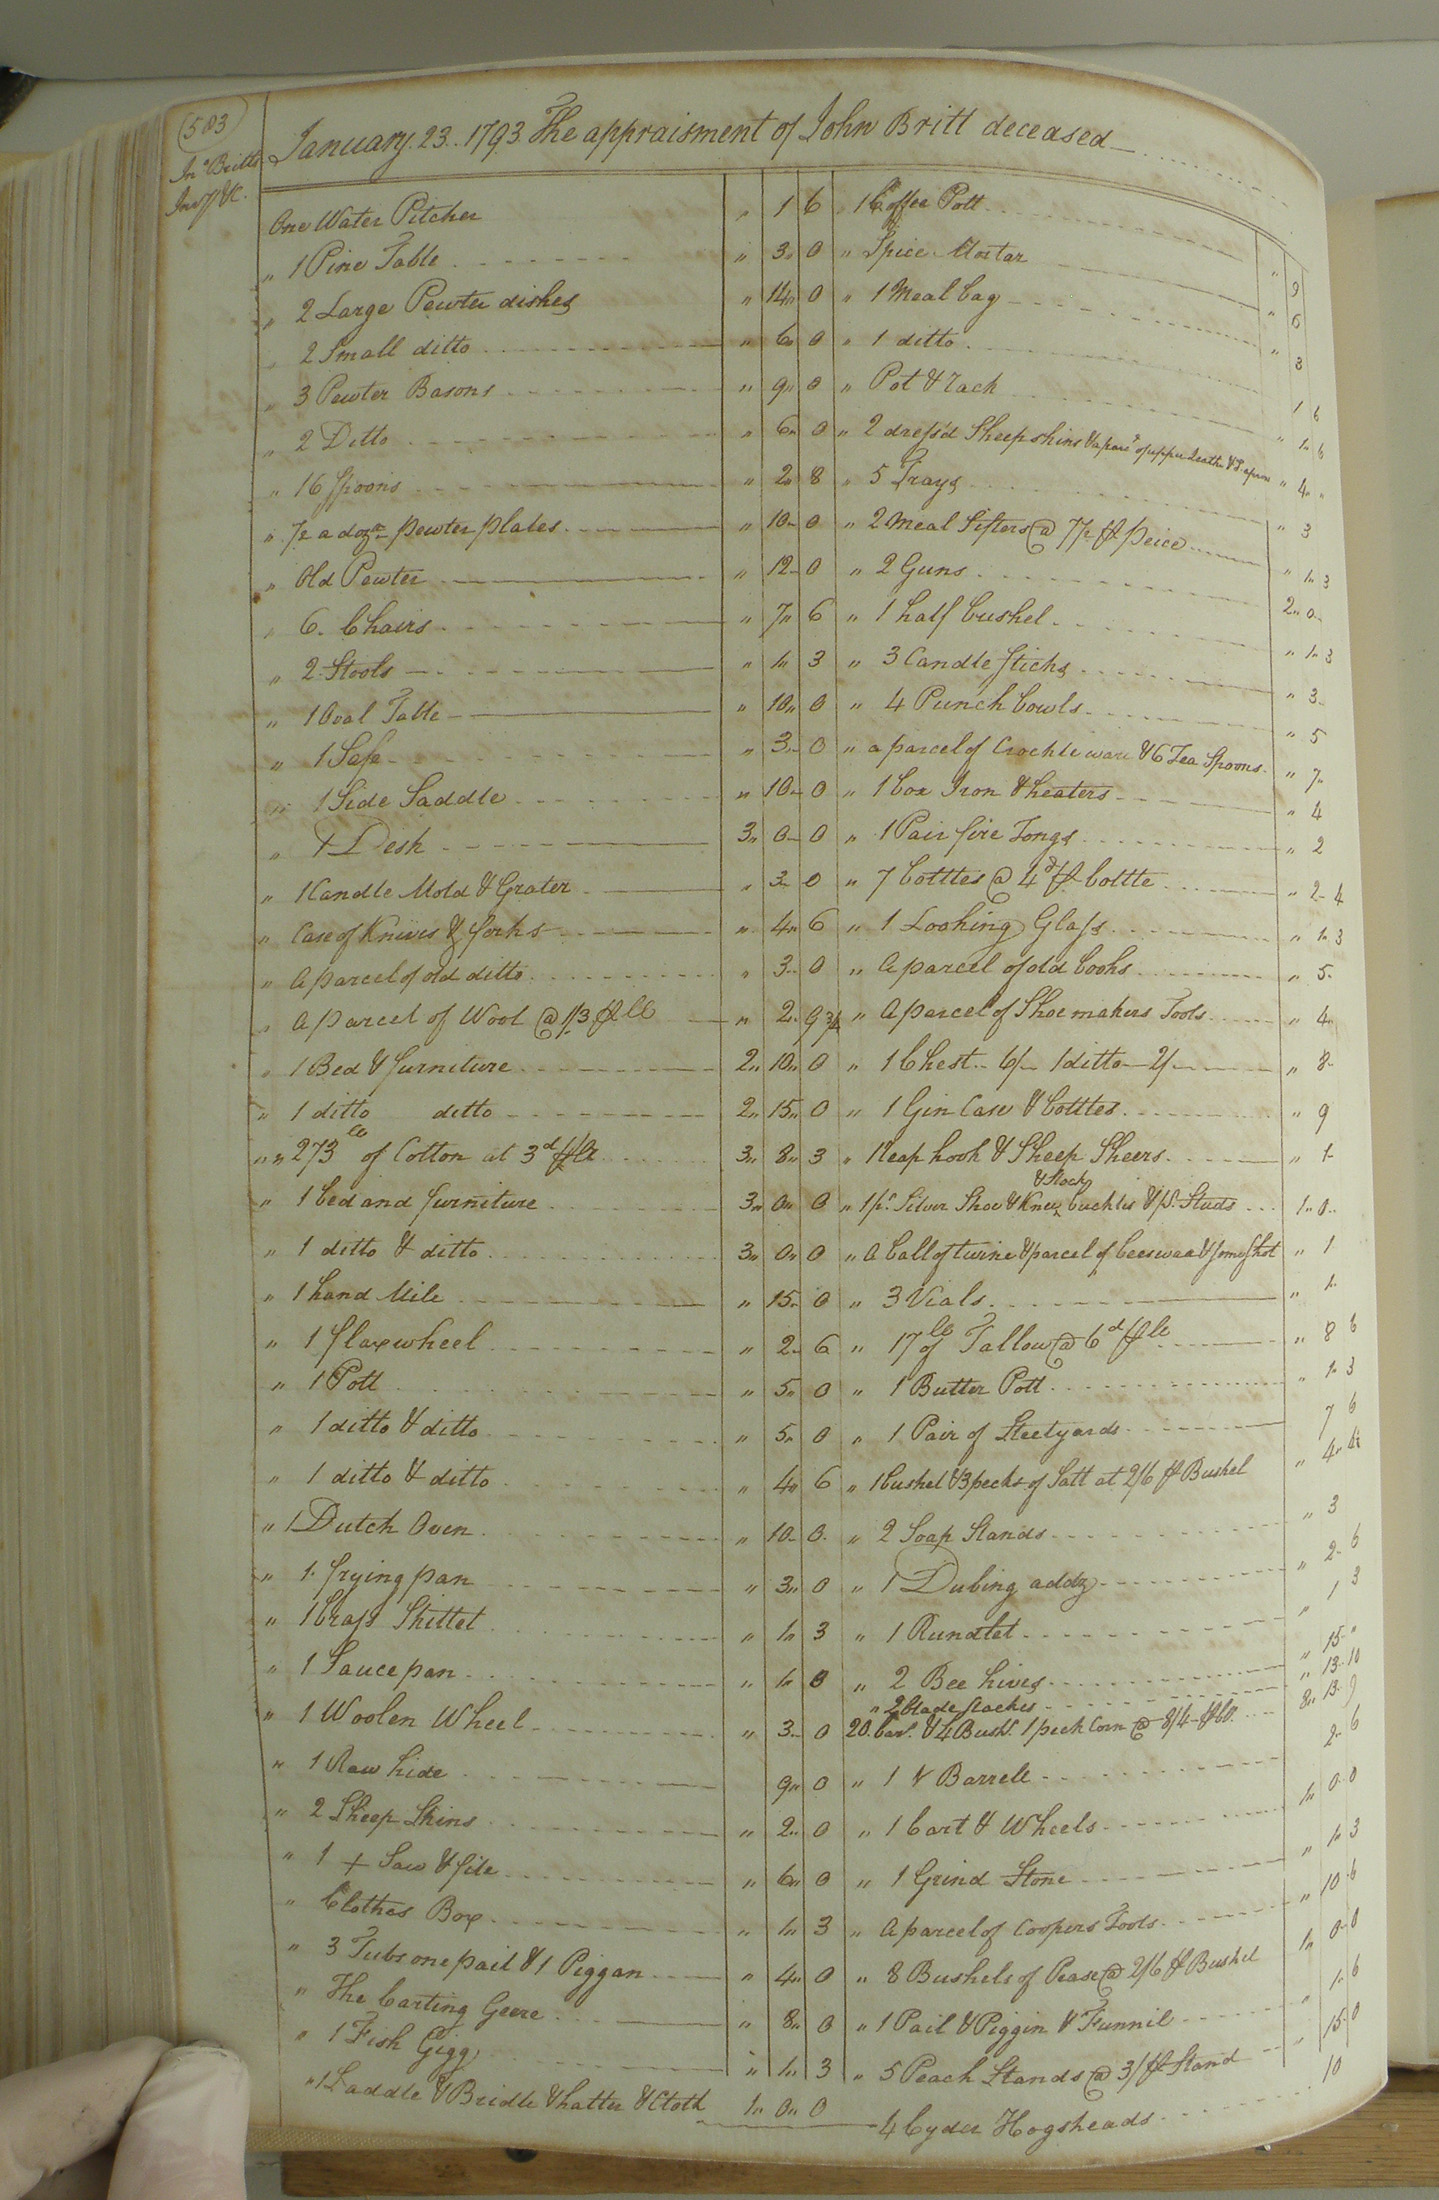 (503)
January. 23. 1793. The appraisment of John Britt deceased
Jno Britts
Invy &c.
One Water Pitcher " 1 6
" 1 Pine Table " 3 " 0
" 2 Large Pewter dishes " 14 " 0
" 2 Small ditto " 6 " 0
" 3 Pewter Basons " 9 " 0
" 2 Ditto " 6 " 0
" 16 Spoons " 2 " 8
" 1/2 a dozn pewter plates " 10 " 0
" Old Pewter " 12 " 0
" 6. Chairs " 7 " 6
" 2 Stools " 1 " 3
" 1 Oval Table " 10 " 0
" 1 Safe " 3 " 0
" 1 Side Saddle " 10 " 0
" 1 Desk 3 " 0 " 0
" 1 Candle Mold & Grater " 3 " 0
" Case of Knives & forks " 4 " 6
" A parcel of old ditto " 3 " 0
" A parcel of Wool @ 1/3 ⅌ lb " 2 " 9 3/4
" 1 Bed & furniture 2 " 10 " 0
" 1 ditto ditto 2 " 15 " 0
" " 273 lb of Cotton at 3d ⅌ lb 3 " 8 " 3
" 1 bed and furniture 3 " 0 " 0
" 1 ditto & ditto 3 " 0 " 0
" 1 hand Mile " 15 " 0
" 1 flax wheel " 2 " 6
" 1 Pott " 5 " 0
" 1 ditto & ditto " 5 " 0
" 1 ditto & ditto " 4 " 6
" 1 Dutch Oven " 10 " 0
" 1. frying pan " 3 " 0
" 1 brass Skittet " 1 " 3
" 1 Sauce pan " 1 " 0
" 1 Woolen Wheel " 3 " 0
" 1 Raw hide 9 " 0
" 2 Sheep Skins " 2 " 0
" 1 + Saw & file " 6 " 0
" Clothes Box " 1 " 3
" 3 Tubs one pail & 1 Piggan " 4 " 0
" The Carting Geere " 8 " 0
" 1 Fish Gigg " 1 " 3
" 1 Saddle & Bridle & halter & Cloth 1 " 0 " 0
" 1 Coffee Pott " 9
" Spice Mortar " 6
" 1 Meal bag " 3
" 1 ditto 1 6
" Pot & rack " 1 " 6
" 2 dress'd Sheepskins & a parcl of upper Leather & S. apron " 4 " "
" 5 Trays " 3
" 2 Meal Sifters @ 7 1/2 ⅌ peice " 1 " 3
" 2 Guns 2 " 0
" 1 half bushel " 1 " 3
" 3 Candle sticks " 3
" 4 Punch bowls " 5
" a parcel of Crockle ware & 6 Tea Spoons " 7
" 1 box Iron & heaters " 4
" 1 Pair fire Tongs " 2
" 7 bottles @ 4d ⅌ bottle " 2 " 4
" 1 Looking Glass " 1 " 3
" A parcel of old books " 5
" A parcel of Shoemakers Tools " 4
" 1 Chest 6/- 1 ditto 2/- " 8
" 1 Gin Case & bottles " 9
" Reap hook & Sheep Sheers " 1
" 1 pr. Silver Shoe & Knee & Stock buckles & pr. Studs 1 " 0
" A ball of twine & parcel of beeswax & some shot " 1
" 3 Vials " 1
" 17 lb of Tallow @ 6d ⅌ lb " 8 6
" 1 Butter Pott " 1 " 3
" 1 Pair of Steelyards 7 6
" 1 bushel & 3 pecks of Salt at 2/6 ⅌ Bushel " 4 " 4 1/2
" 2 Soap Stands " 3
" 1 Dubing addz " 2 " 6
" 1 Rundlet " 1 3
" 2 Bee hives " 15 "
" 2 blade stackes " 13 " 10
20. bar. & 4 Bush. 1 peck Corn @ 8/4 ⅌ bl. 8 " 13 " 9
" 1 & Barrell 2 " 6
" 1 Cart & Wheels 1 " 0 " 0
" 1 Grind Stone " 1 " 3
" A parcel of Coopers Tools " 10 6
" 8 Bushels of Pease @ 2/6 ⅌ Bushel 1 " 0 " 0
" 1 Pail & Piggin & Funnil " 1 " 6
" 5 Peach Stands @ 3/ ⅌ Stand " 15 " 0
4 Cyder Hogsheads 10